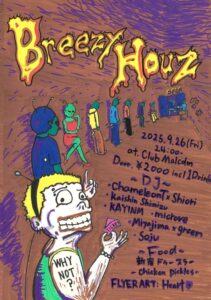 Breezy Houz
2025. 9.26 (Fri)
24:00-
at. Club Malcolm
Door. ¥2000 incl 1Drink
~DJ~
・Chameleon T ・Shiori
・Kaishin Shimizu
・KAYINM ・mictove
・Miyajima ・green
・Soju
~Food~
・Chicken Pickles~
FLYER ART: Heart
WHY
NOT?